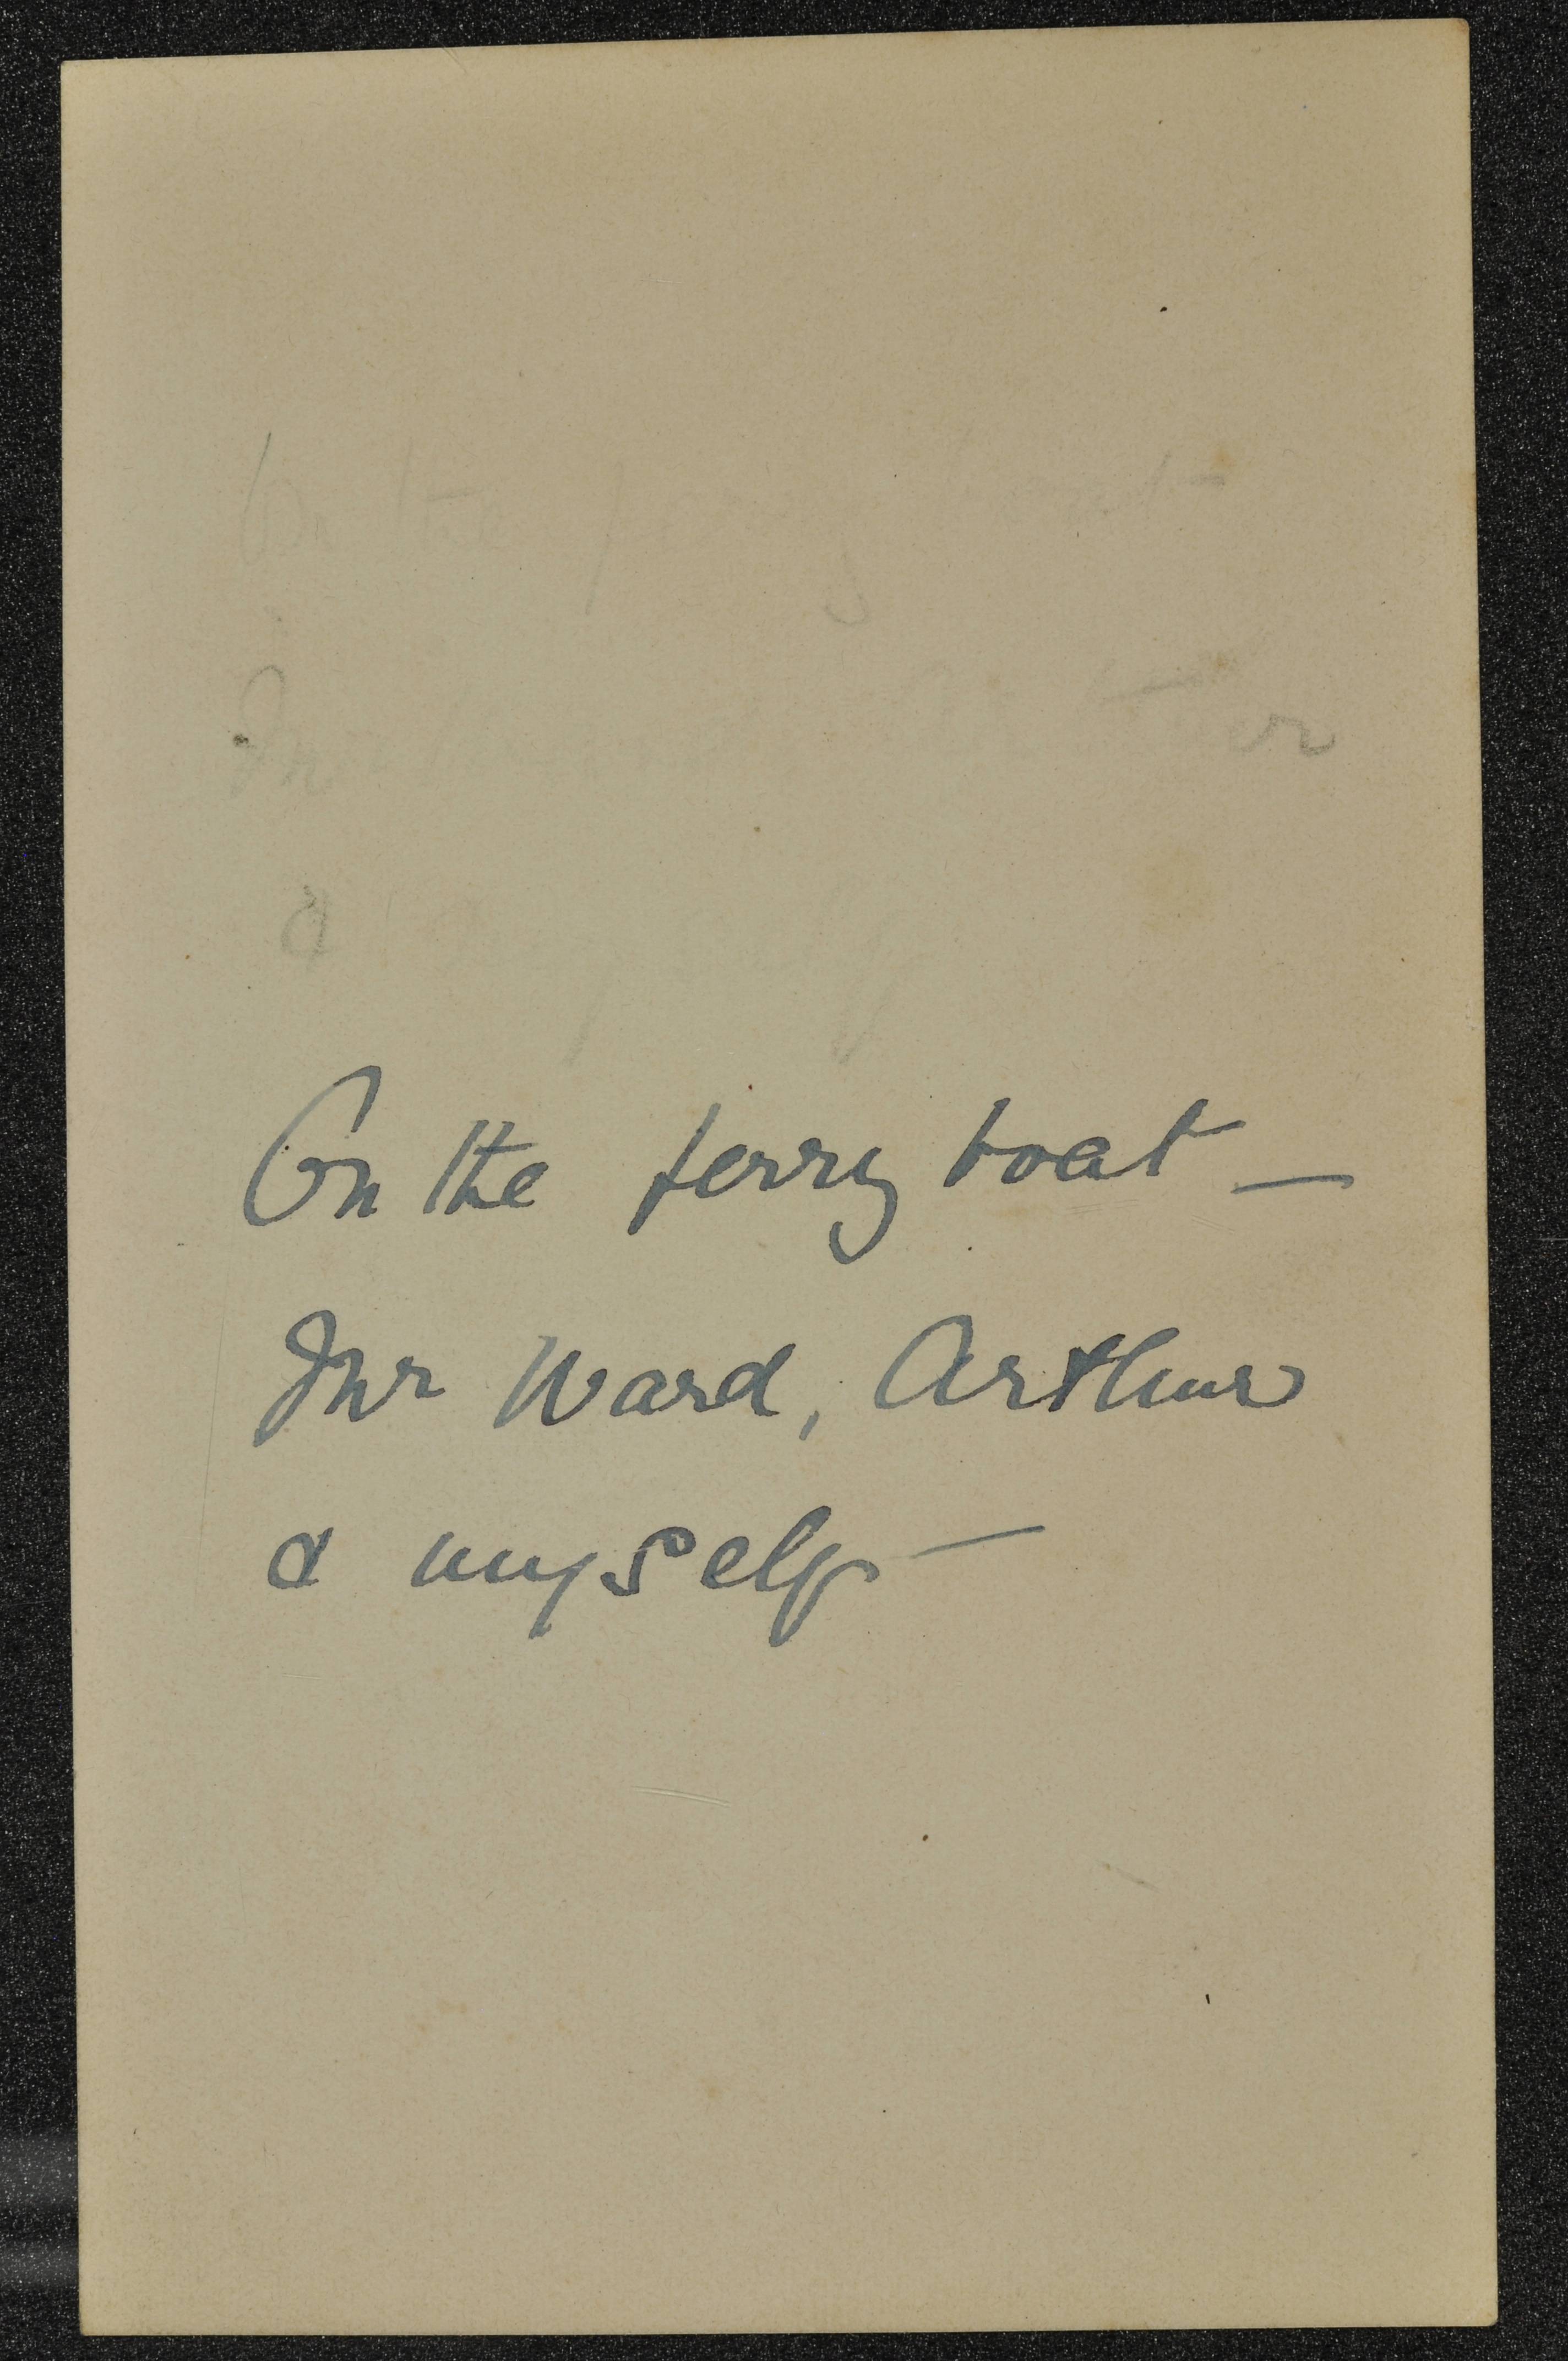 On the ferry boat —
Mr Ward, Arthur
& myself —